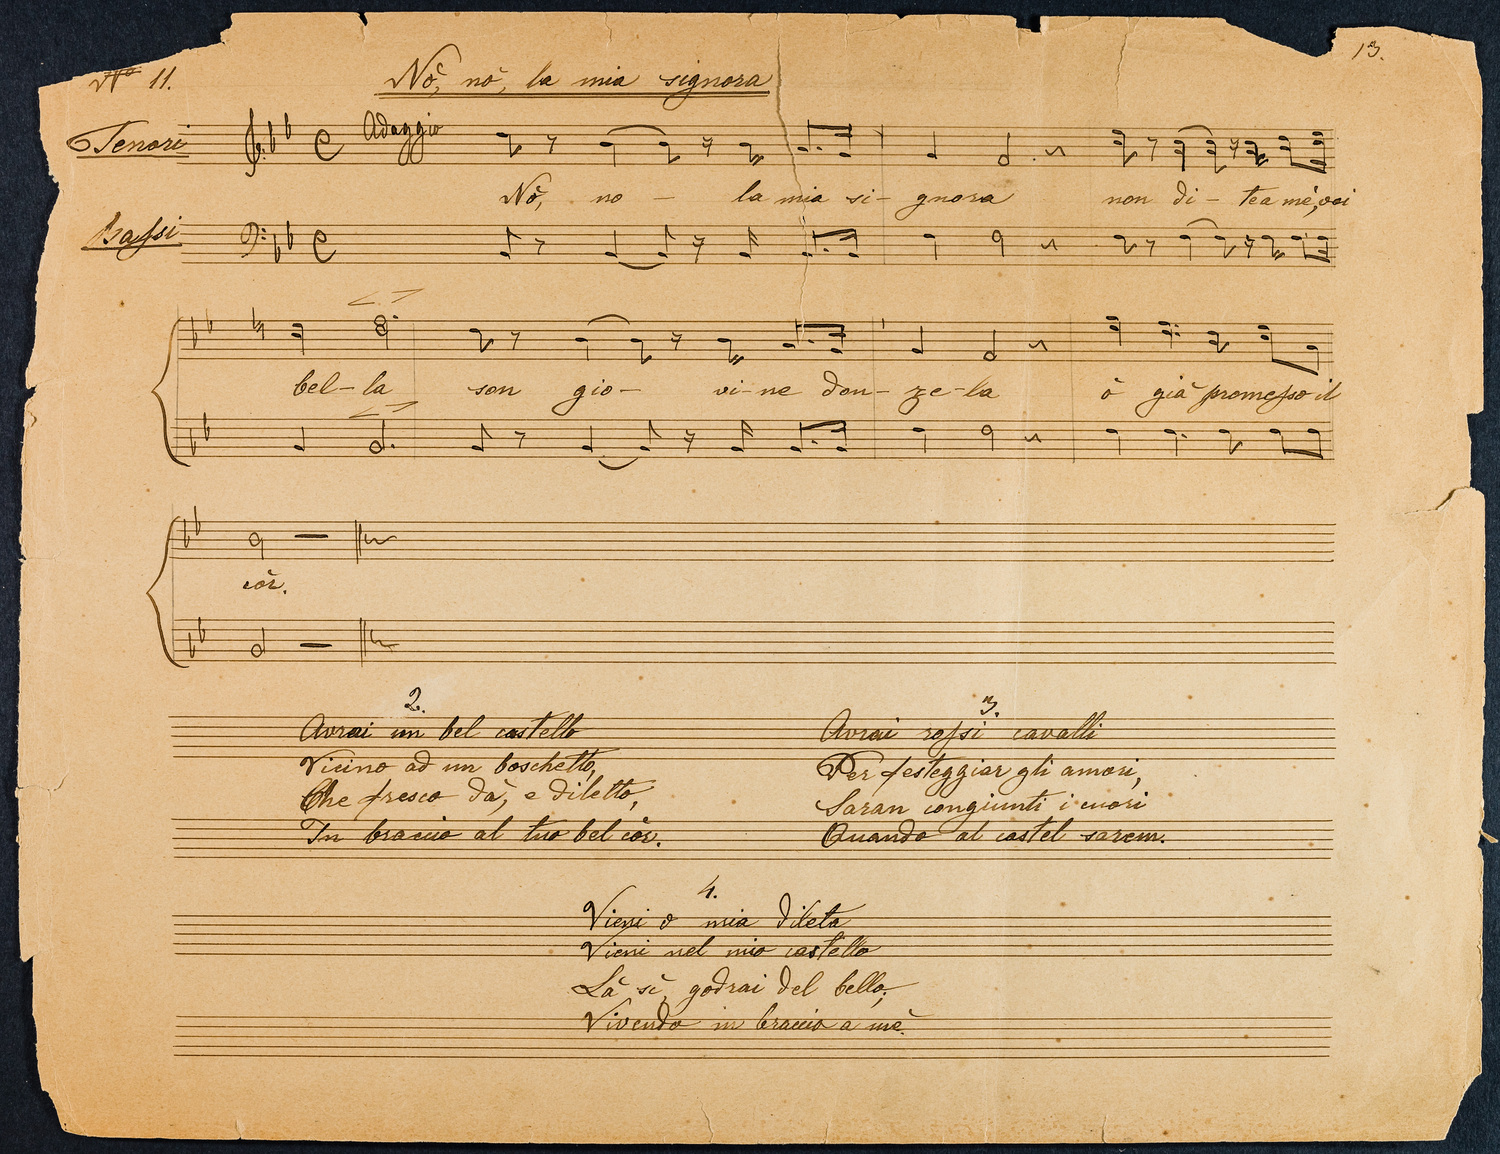 No 11.
13.
Nò, nò, la mia signora
Tenori
Adaggio
Nò, no - la mia si- gnora non di - te a mè, voi
Bassi
bel - la son gio - vi - ne don - ze - la ò già promesso il
còr.
2.
Avrai un bel castello
Vicino ad un boschetto,
Che fresco dà, e diletto,
In braccio al tuo bel còr.
3.
Avrai rossi cavalli
Per festeggiar gli amori,
Saran congiunti i cuori
Quando al castel sarem.
4.
Vieni o mia dileta
Vieni nel mio castello
Là sì, godrai del bello,
Vivendo in braccio a mè.